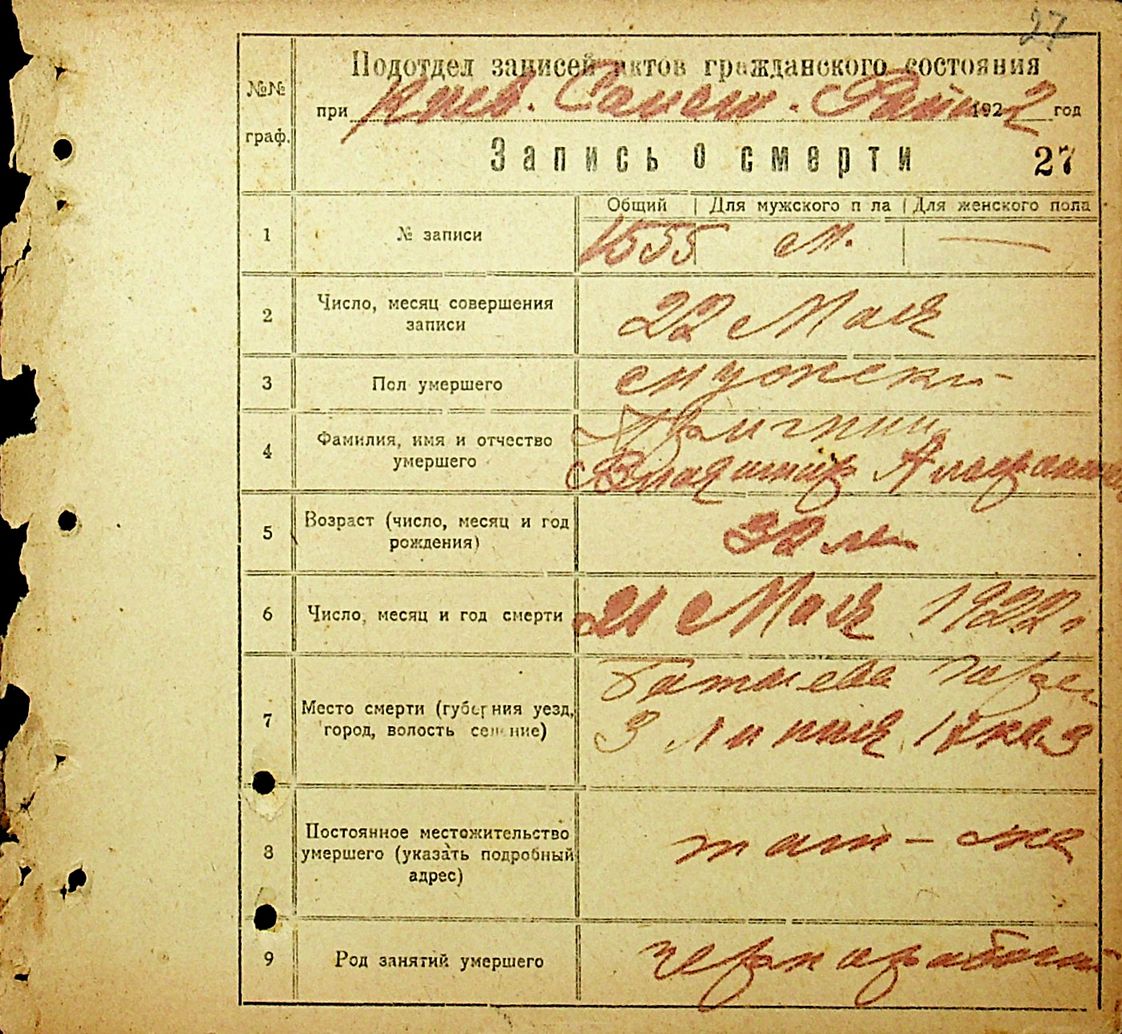 27
Подотдел записей актов гражданского состояния
№№ граф.
при 1922 год
Запись о смерти 27
Общий | Для мужского п ла | Для женского пола
1 № записи 1555 м. —
2 Число, месяц совершения записи 22 Мая
3 Пол умершего мужски
4 Фамилия, имя и отчество умершего
Владимир
5 Возраст (число, месяц и год рождения) 32 л
6 Число, месяц и год смерти 21 Мая 1922 г
7 Место смерти (губерния уезд, город, волость сение)
3 Линия
8 Постоянное местожительство умершего (указать подробный адрес) там-же
9 Род занятий умершего чернорабочий